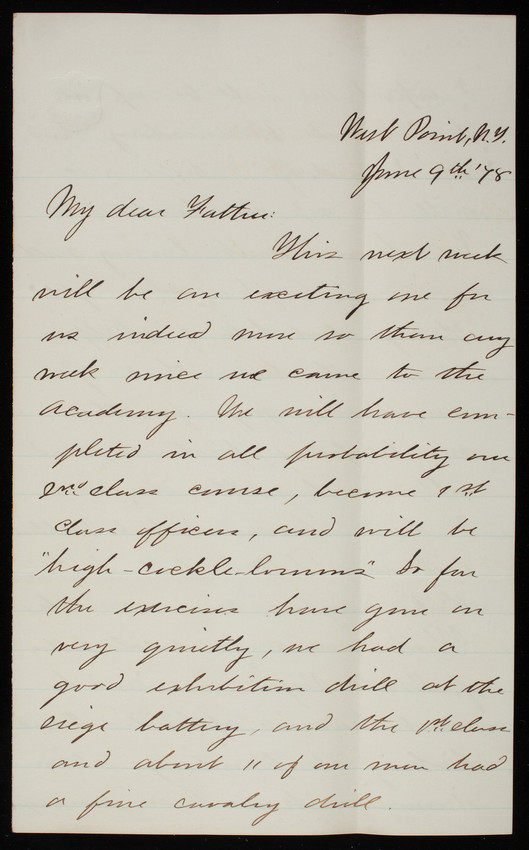 West Point, N.Y.
June 9th '78
My dear Father:
This next week
will be an exciting one for
us indeed more so than any
week since we came to the
Academy. We will have com-
pleted in all probability our
2nd class course, become 1st
class officers, and will be
"high-cockle-lorums" So far
the exercises have gone on
very quietly, we had a
good exhibition drill at the
siege battery, and the 1st class
and about 11 of our men had
a fine cavalry drill.